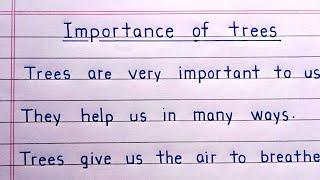 Importance of trees
Trees are very important to us
They help us in many ways.
Trees give us the air to breathe